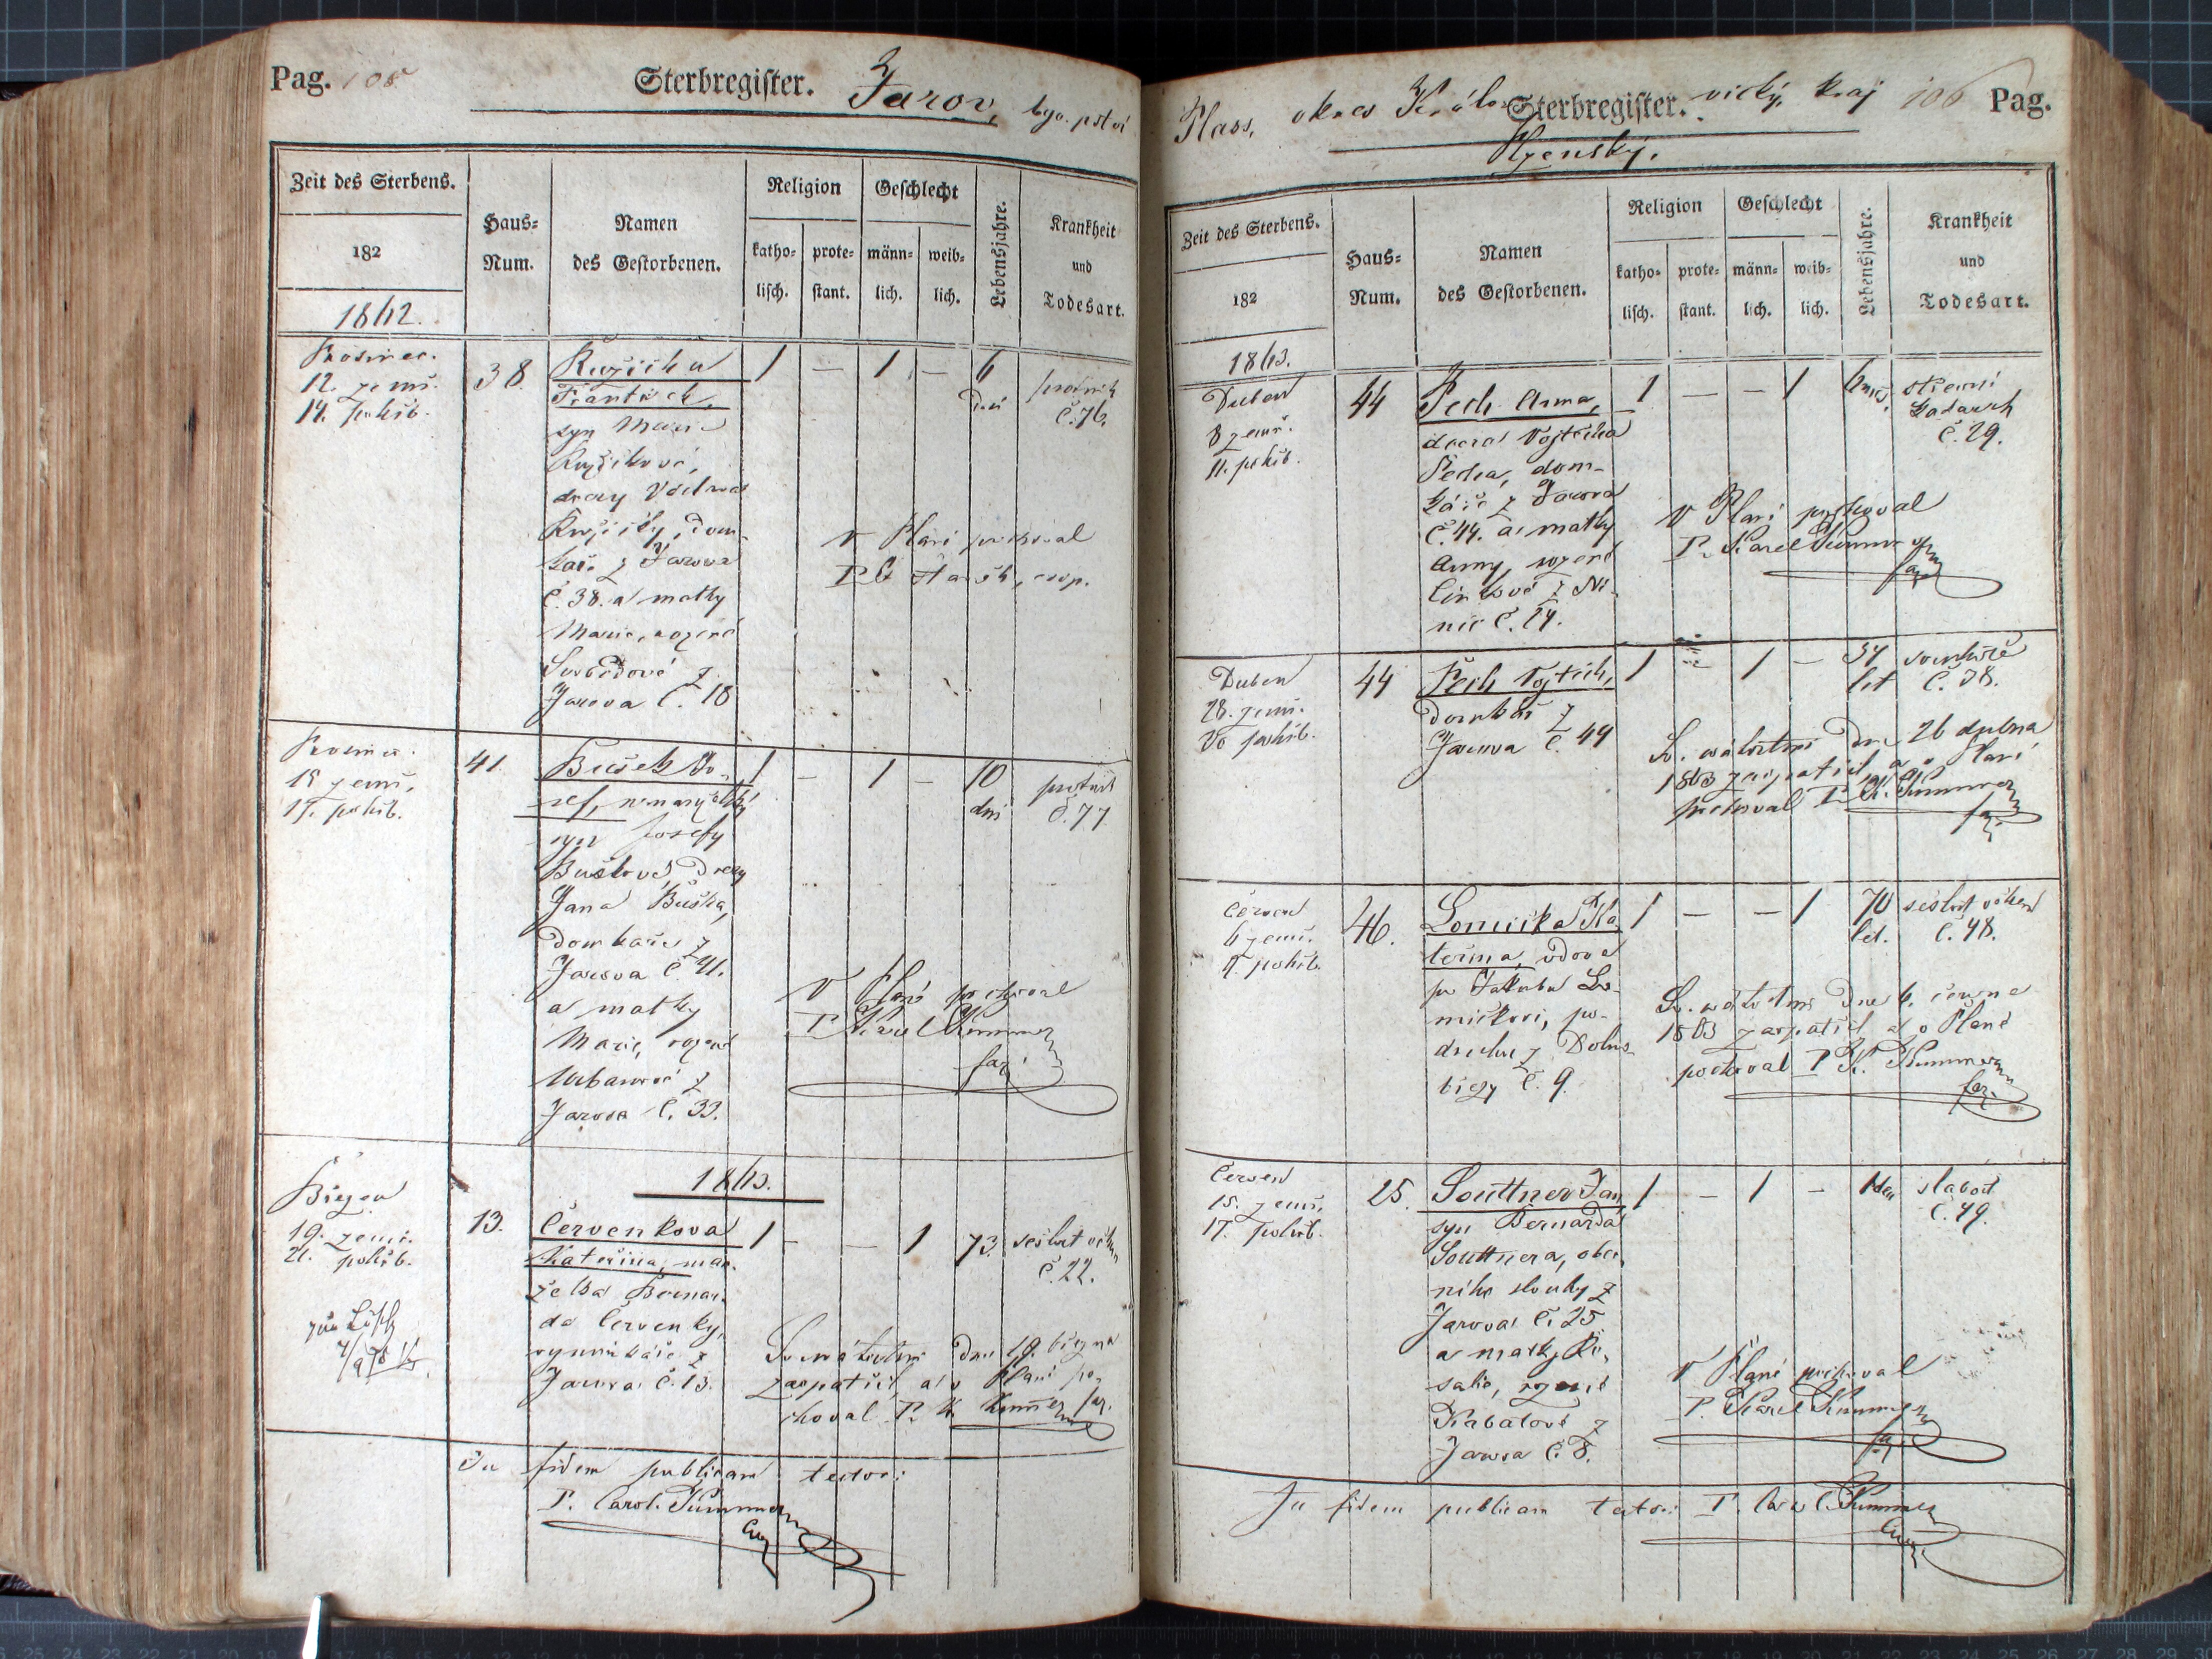 Pag. 105
Sterbregister.
Jarov,
Zeit des Sterbens.
182
1862.
Haus=
Num.
Namen
des Gestorbenen.
Religion
katho=
lisch.
prote=
stant.
Geschlecht
männ=
lich.
weib=
lich.
Lebensjahre.
Krankheit
und
Todesart.
Prosinec.
12. zemř.
14. pohřb.
38.
Růžička
František,
syn Marie
Růžičkové,
dcery Václava
Růžičky, dom-
káře z Jarova
č. 38. a matky
Marie, rozené
Svobodové z
Jarova č. 18
1 — 1 — 6
dní
psotník
č. 76.
v Plani pochoval
15 zemř.
17. pohřb.
41.
Bušek Jo-
sef, nemanželský
syn Josefy
Buškové, dcery
Jana Buška,
domkáře z
Jarova č. 41.
a matky
Marie, rozené
Urbanové z
Jarova č. 33.
1 — 1 — 10
dní
psotník
č. 77
V Plané pochoval
P. Karel Kummer
far.
1863.
Březen
19. zemř.
21. pohřb.
13.
Červenkova
Kateřina, man-
želka Bernar-
da Červenky,
výminkáře z
Jarova č. 13.
1 — — 1 73.
sešlost věkem
č. 22.
Sv. svátostmi dne 19. března
zaopatřil a v Plani po-
choval P. K. Kummer far.
In fidem publicam testor:
P. Carol. Kummer
Plass, okres Králo-
Sterbregister.
vický, kraj
106 Pag.
Plzenský.
Zeit des Sterbens.
182
1863.
Haus=
Num.
Namen
des Gestorbenen.
Religion
katho=
lisch.
prote=
stant.
Geschlecht
männ=
lich.
weib=
lich.
Lebensjahre.
Krankheit
und
Todesart.
Duben
8 zemř.
11. pohřb.
44
Pech Anna,
dcera Vojtěcha
Pecha, dom-
káře z Jarova
č. 44. a matky
Anny, rozené
1 — — 1 6 měs.
střevní
katarrh
č. 29.
V Plani pochoval
P. Karel Kummer
far.
Duben
28. zemř.
30 pohřb.
44
Pech Vojtěch,
domkář z
Jarova č. 44
1 — 1 — 34
let
souchotě
č. 38.
Sv. svátostmi dne 26 dubna
1863 zaopatřil a v Plani
pochoval P. K. Kummer
far.
Červen
6 zemř.
9. pohřb.
46.
Lomička Ka-
teřina, vdova
po Jakubu Lo-
mičkovi, po-
druhu z Dolno-
břízy č. 9.
1 — — 1 70
let.
sešlost věkem
č. 48.
Sv. svátostmi dne 6. června
1863 zaopatřil a v Plané
pochoval P. K. Kummer
far.
Červen
15. zemř.
17. pohřb.
25.
Souttner Jan,
syn Bernarda
Souttnera, obec-
ního slouhy z
Jarova č. 25
a matky Ro-
salie, rozené
Kabátové z
Jarova č. 8.
1 — 1 — 1 den
slabost
č. 49.
V Plané pochoval
P. Karel Kummer
far.
In fidem publicam testor: P. Carol. Kummer